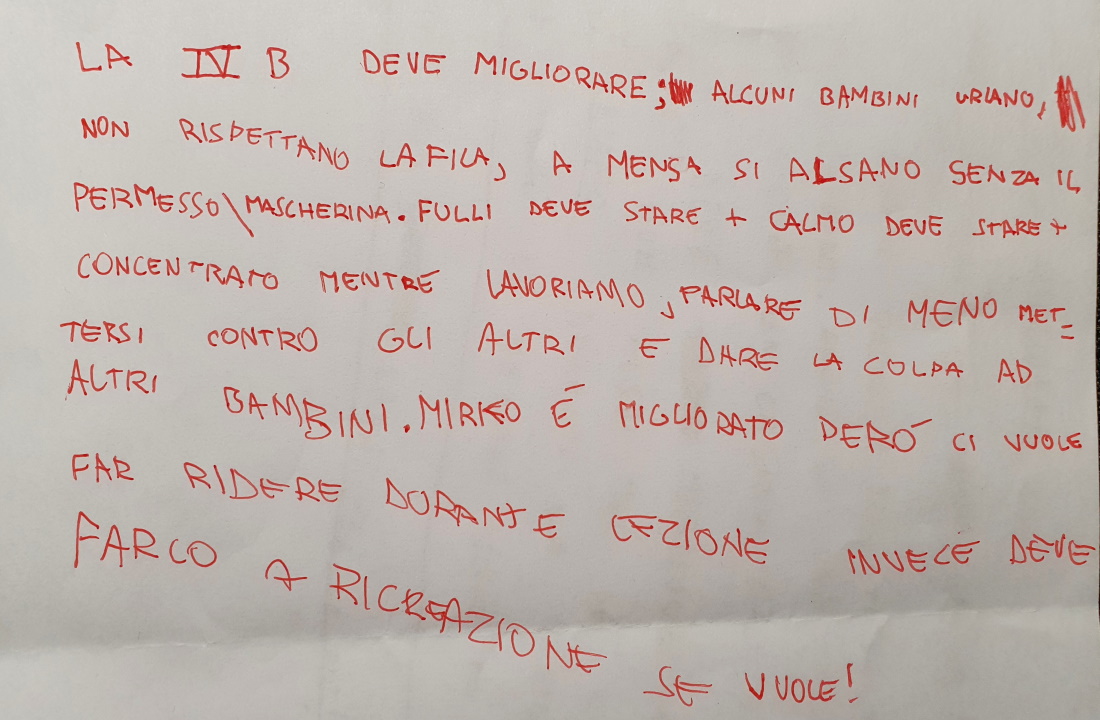 LA IV B DEVE MIGLIORARE; ALCUNI BAMBINI URLANO,
NON RISPETTANO LA FILA, A MENSA SI ALSANO SENZA IL
PERMESSO\MASCHERINA. FULLI DEVE STARE + CALMO DEVE STARE +
CONCENTRATO MENTRE LAVORIAMO, PARLARE DI MENO MET=
TERSI CONTRO GLI ALTRI E DARE LA COLPA AD
ALTRI BAMBINI. MIRKO É MIGLIORATO PERÓ CI VUOLE
FAR RIDERE DURANTE LEZIONE INVECE DEVE
FARLO A RICREAZIONE SE VUOLE!